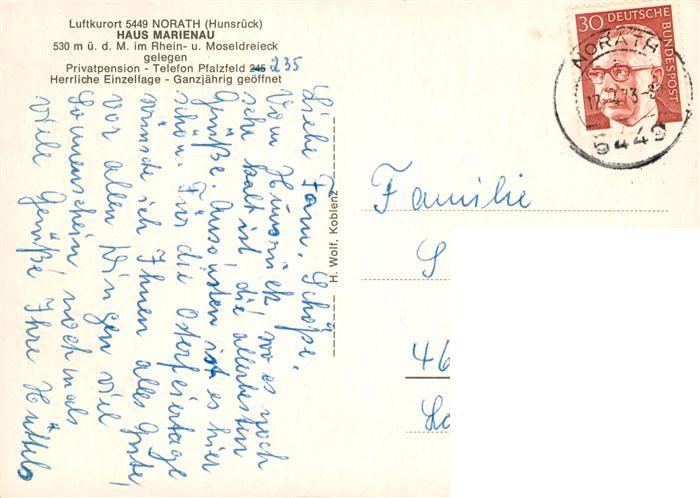 Luftkurort 5449 NORATH (Hunsrück)
HAUS MARIENAU
530 m ü. d. M. im Rhein- u. Moseldreieck
gelegen
Privatpension - Telefon Pfalzfeld 245 235
Herrliche Einzellage - Ganzjährig geöffnet
Liebe Fam. Schöße.
Vom Hunsrück wo es noch
sehr kalt ist die allerbesten
Grüße. Ansonsten ist es hier
schön. Für die Osterfeiertage
wünsche ich Ihnen alles Gute,
vor allen Dingen viel
Sonnenschein nochmals
viele Grüße Ihre
H. Wolf, Koblenz
30 DEUTSCHE BUNDESPOST
NORATH
17.-4.73
5449
Familie
S
46